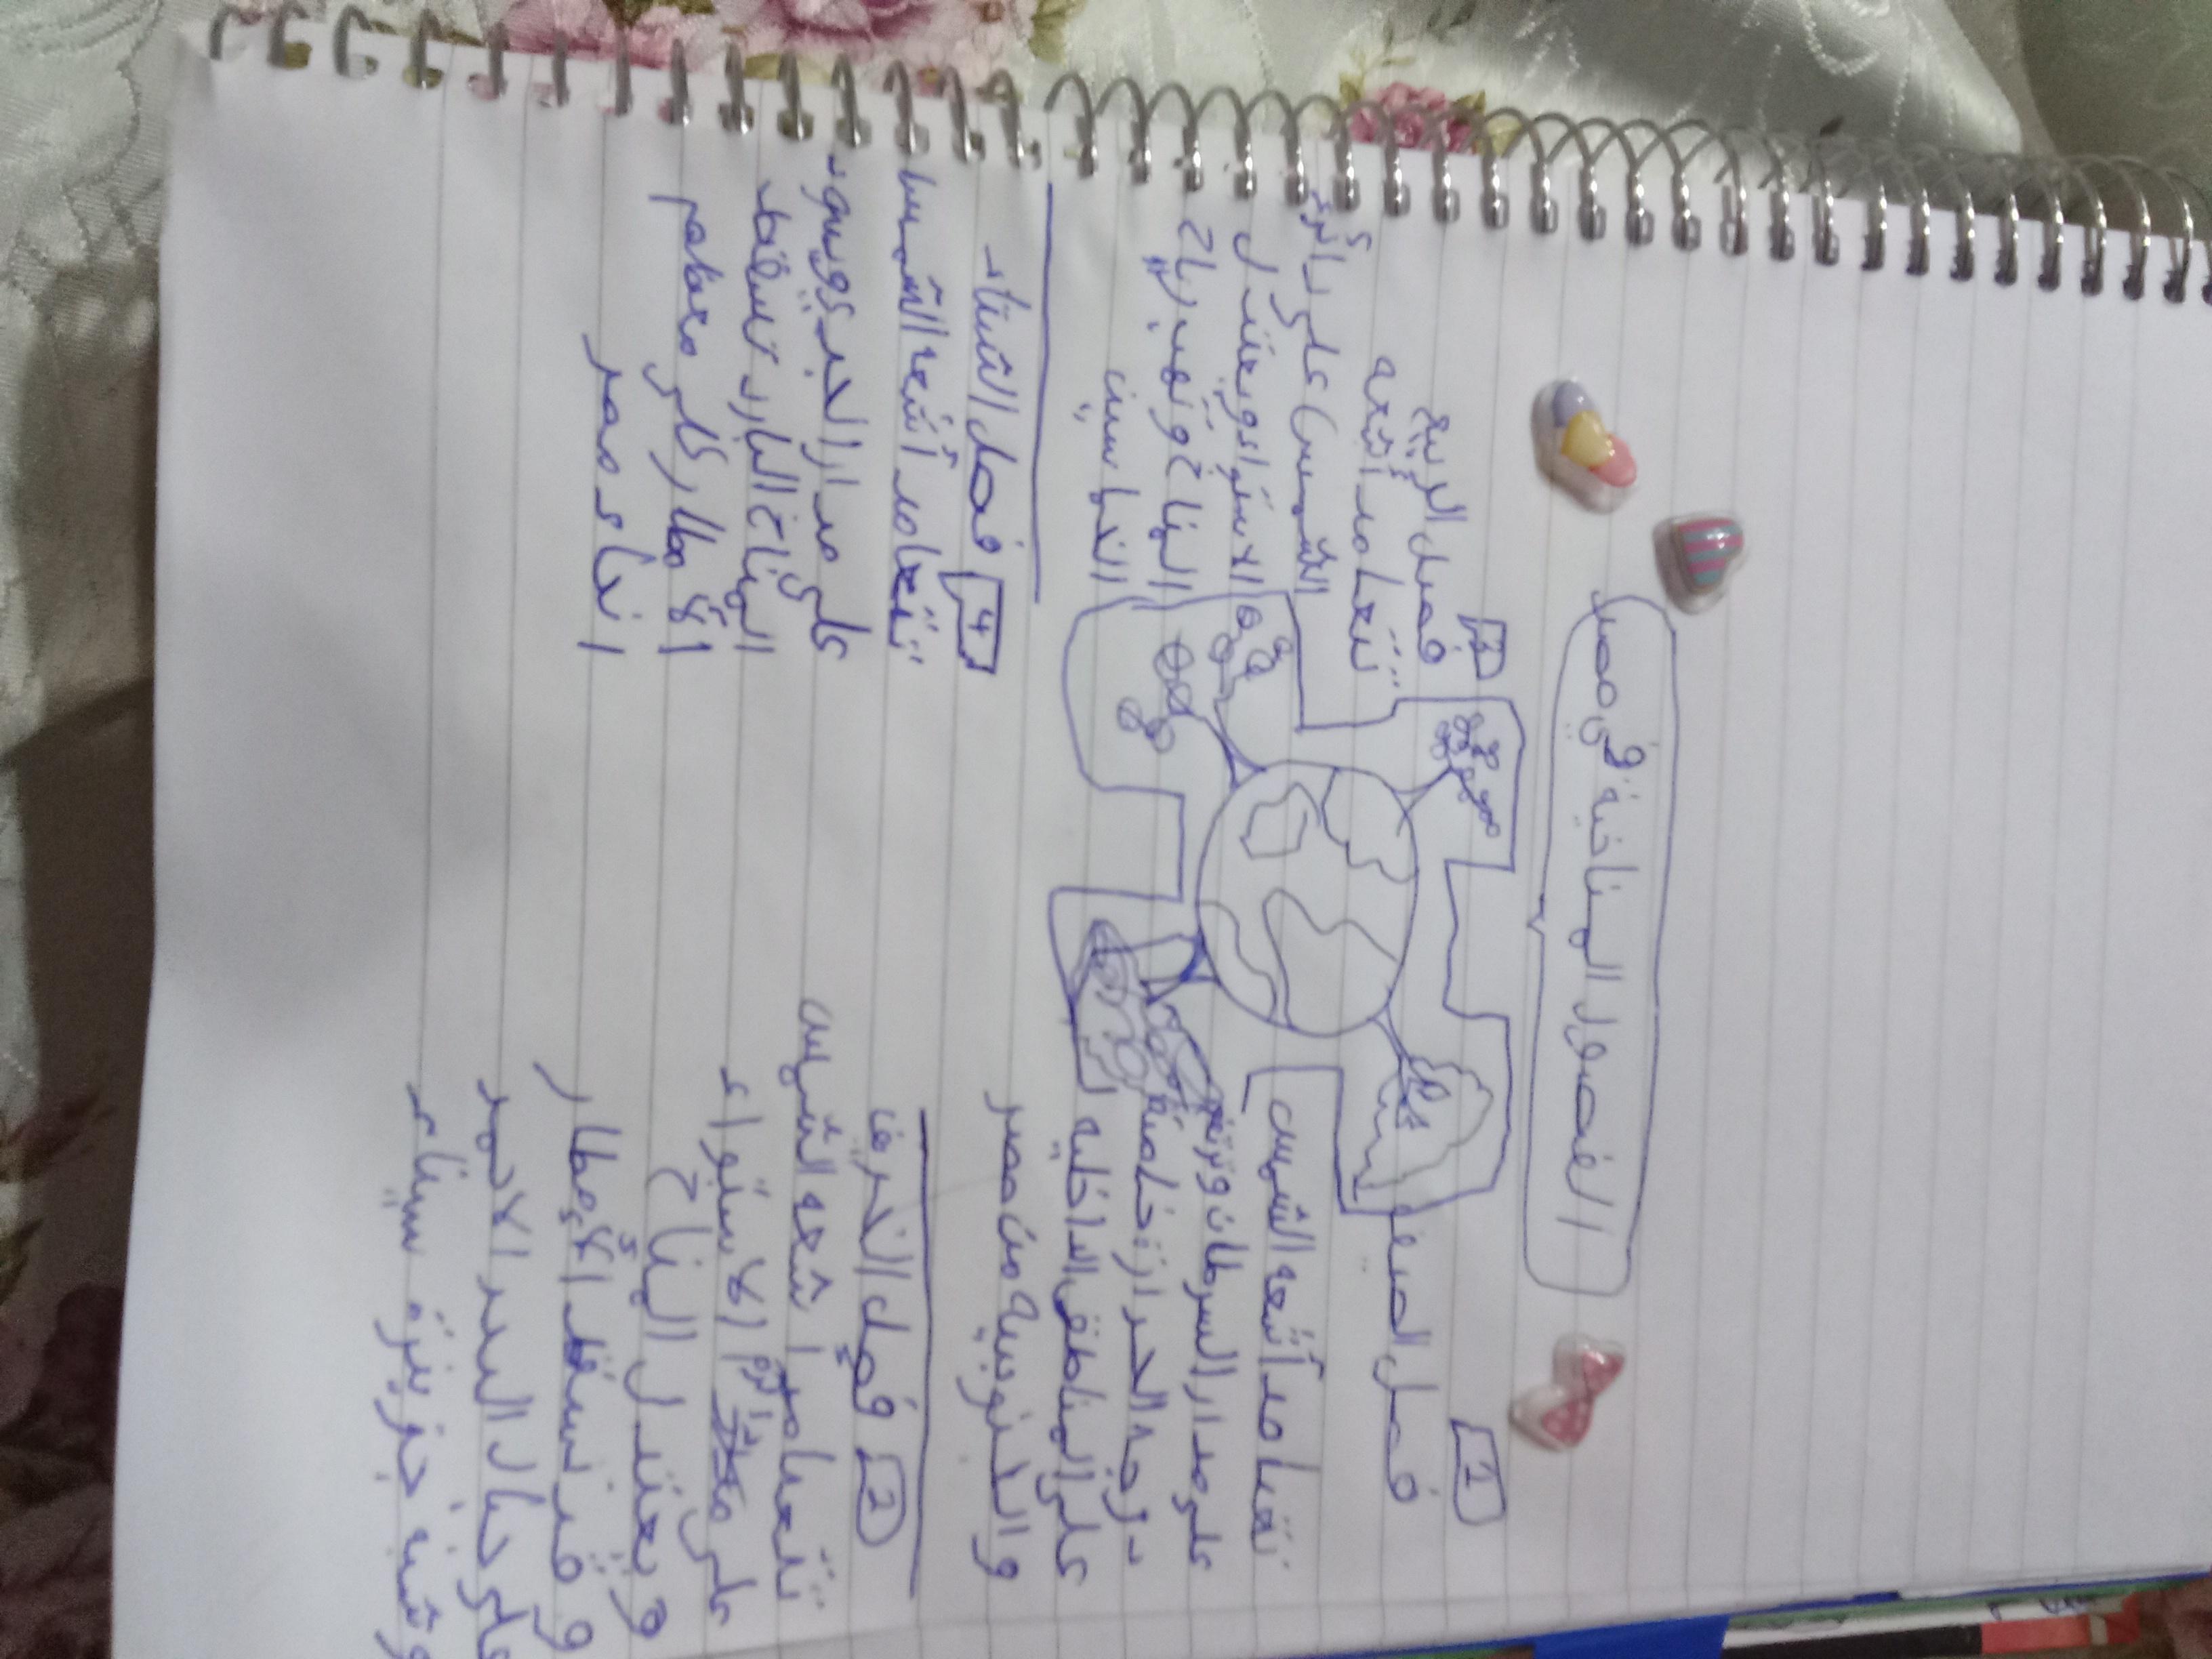 الفصول المناخية في مصر
1
فصل الصيف
تتعامد أشعه الشمس
على مدار السرطان وترتفع
درجه الحرارة خاصة
على المناطق الداخليه
والجنوبيه من مصر
2
فصل الخريف
تتعامد اشعه الشمس
على دائرة الاستواء
ويعتدل المناخ
وقد تسقط الأمطار
على جبال البحر الاحمر
وشبه جزيرة سيناء
3
فصل الربيع
تتعامد أشعه
الشمس على دائرة
الاستواء ويعتدل
المناخ وتهب رياح
الخماسين
4
فصل الشتاء
تتعامد أشعه الشمس
على مدار الجدي ويسود
المناخ البارد تسقط
الأمطار على معظم
انحاء مصر